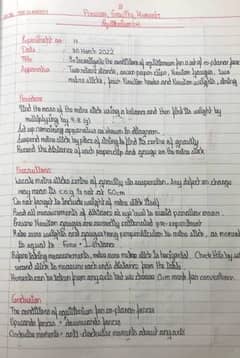 Pressure, Gravity, Moments
Equilibrium
Experiment no: 11
Date: 30 March 2022
Title: To investigate the conditions of equilibrium for a set of co-planar forces
Apparatus: Two retort stands, seven paper clips, Newton gauges, two
metre sticks, four Newton hooks and Newton weights, string
Procedure
Find the mass of the metre stick using a balance and then find its weight by
multiplying by 9.8 (g)
Set up remaining apparatus as shown in diagram.
Suspend metre stick by piece of string to find its centre of gravity
Record the distances of each paperclip and gauge on the metre stick
Precautions
Locate metre sticks centre of gravity via suspension. Any defect or change
may mean its c.o.g is not at 50cm
Do not forget to include weight of metre stick itself
Read all measurements of distance at eye level to avoid parallax error
Ensure Newton gauges are correctly calibrated pre-experiment
Make sure weights and gauges hang perpendicular to metre stick, as moment
is equal to Force × ⊥ distance
Before taking measurements, make sure metre stick is horizontal. Check this by using
second stick to measure each ends distance from the table.
Moments can be taken from any axis but we choose 0cm mark for convenience.
Conclusion
The conditions of equilibrium for co-planar forces
Upwards forces = downwards forces
Clockwise moments = anti-clockwise moments about any axis